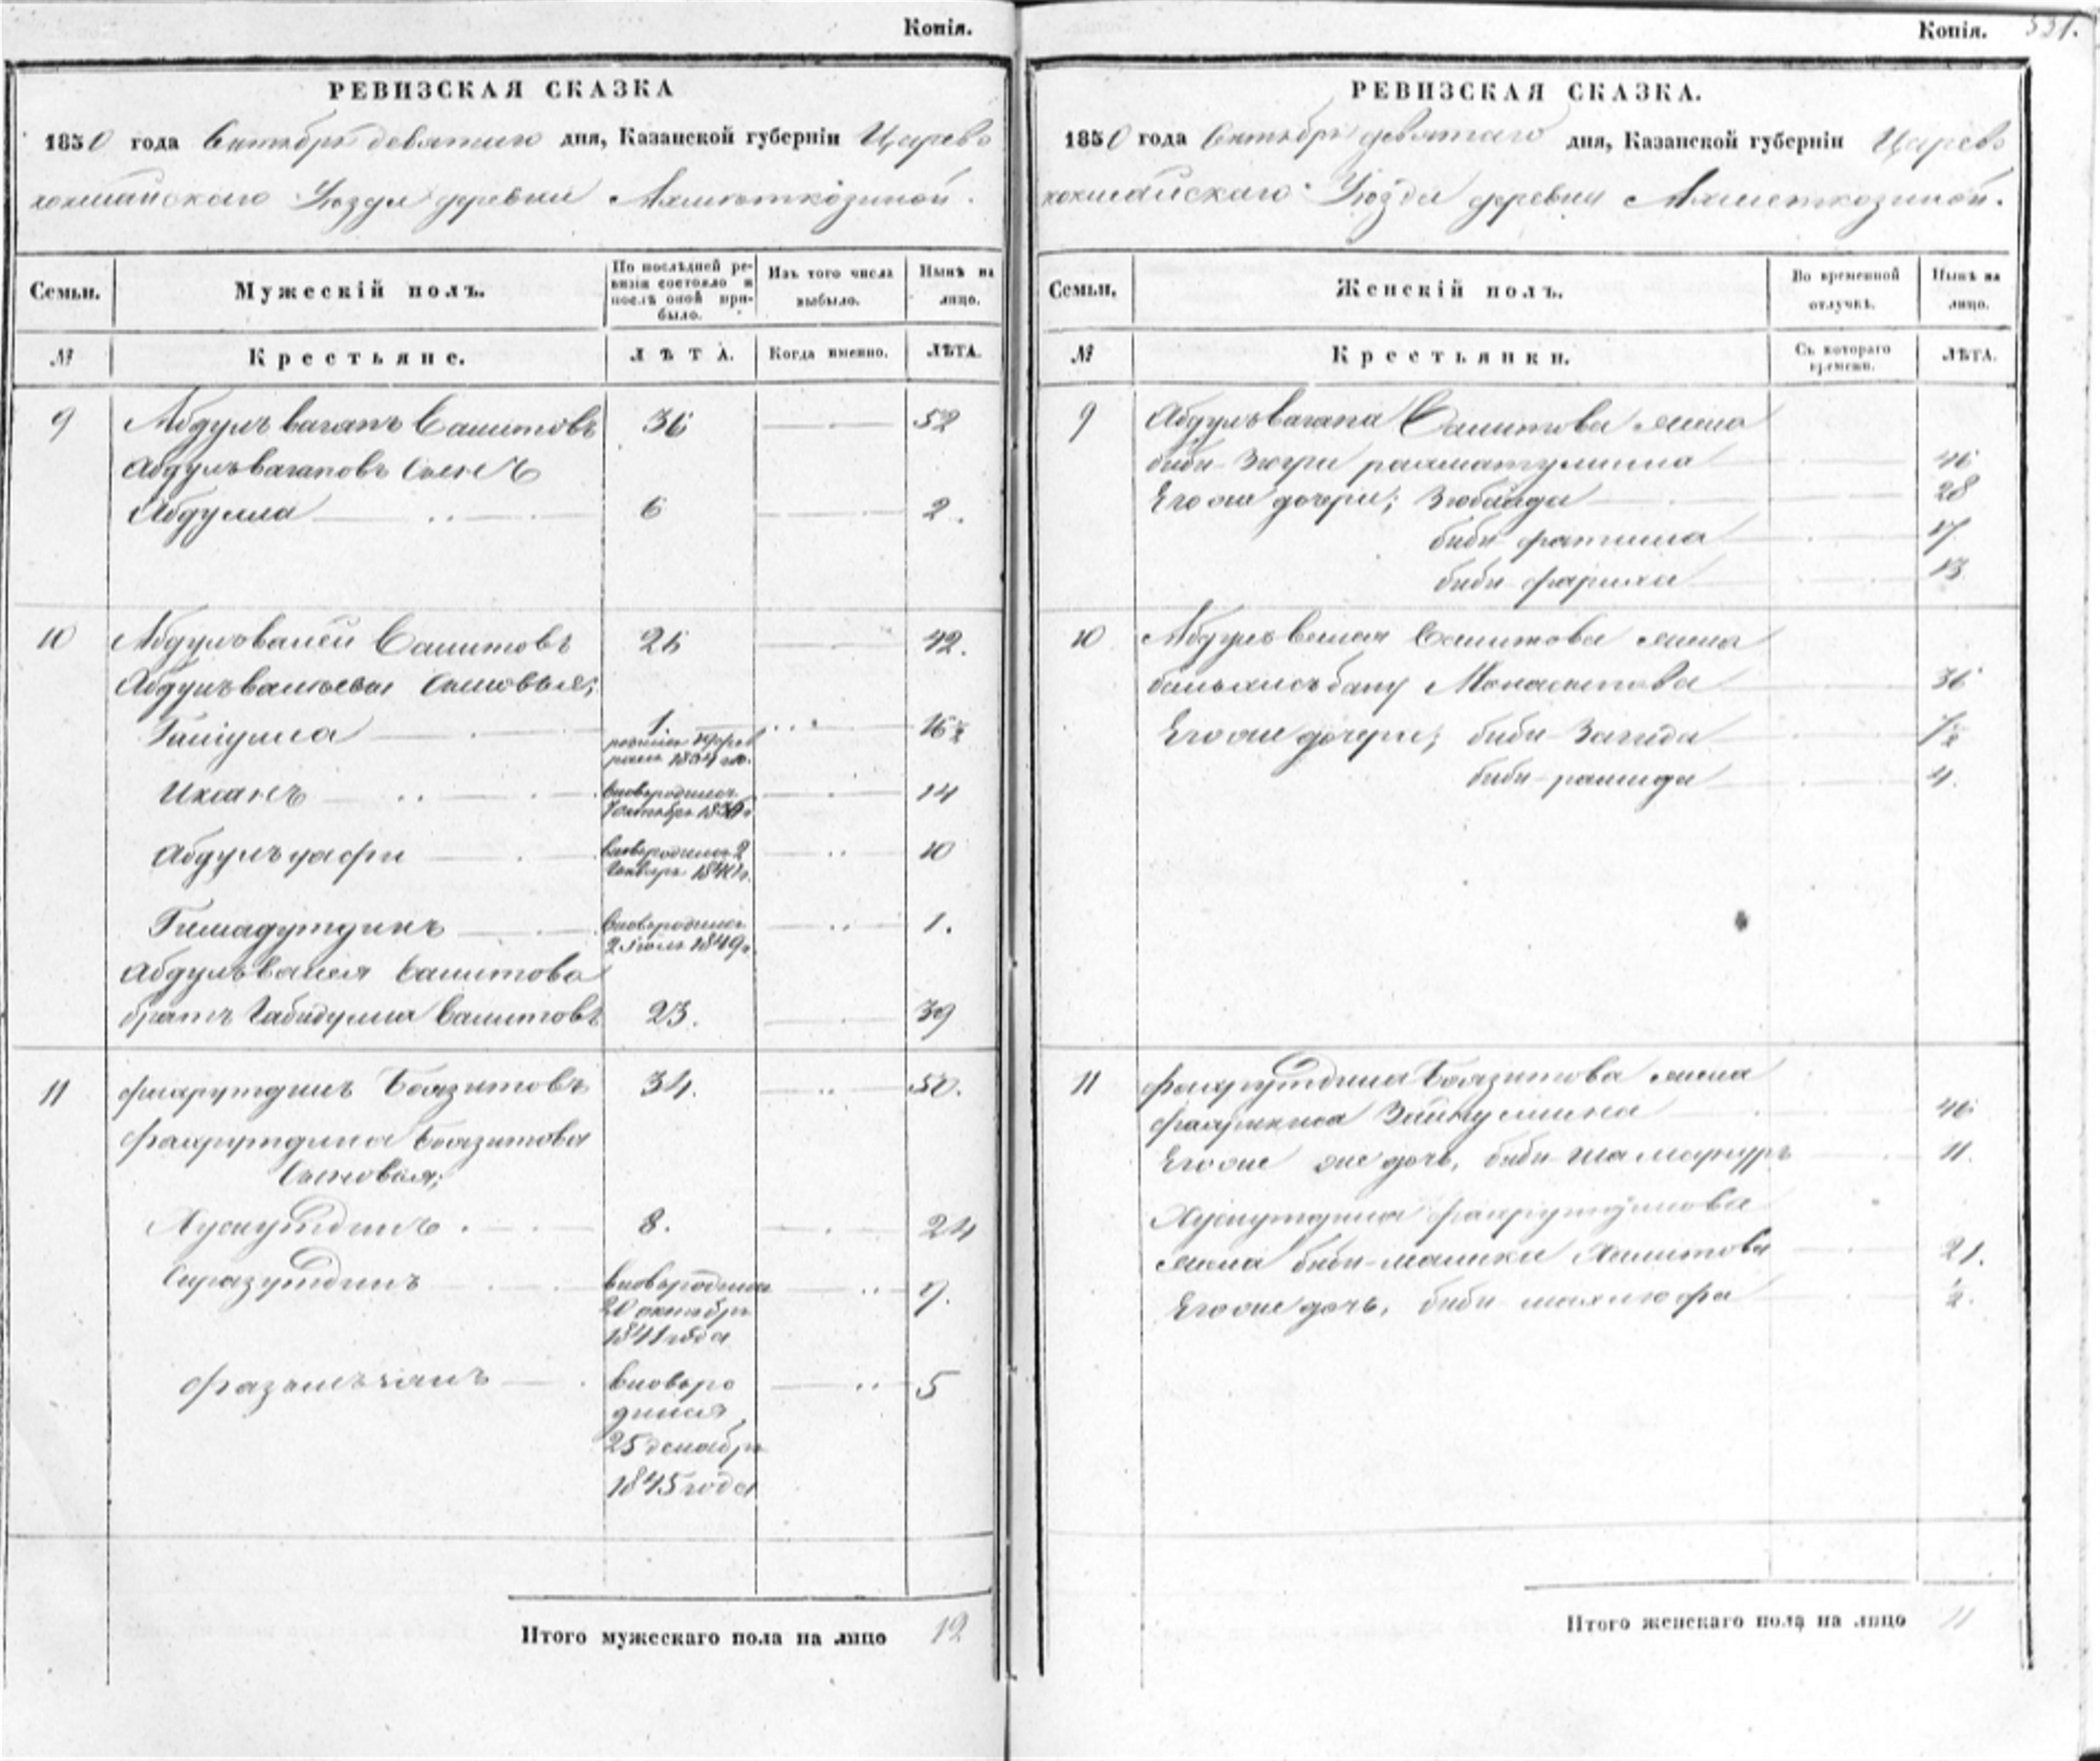 Копія.
РЕВИЗСКАЯ СКАЗКА
1850 года Октября девятаго дня, Казанской губерніи Царево
кокшайскаго Уѣзда деревни Ахметкозиной.
Семьи.
Мужескій полъ.
По послѣдней ре-
визіи состояло и
послѣ оной при-
было.
Изъ того числа
выбыло.
Нынѣ на
лицо.
№
Крестьяне.
ЛѢТА.
Когда именно.
ЛѢТА.
9 Абдулъ вагапъ Сашитовъ 36 52
Абдулъвагаповъ сынъ
Абдулла 6 2.
10 Абдулвалей Сашитовъ 26 42.
Абдулъвалеевы сыновья;
1. 16½
1834
14
вновьродился
10
вновьродился 2
Гимадутдинъ вновьродился 1.
2 Іюля 1849г.
Абдулъвалея Сашитова
братъ Габидулла Сашитовъ 23. 39
11 Фахрутдинъ Баязитовъ 34. 50.
Фахрутдина Баязитова
Сыновья;
Хуснутдинъ 8. 24
Сиразутдинъ вновьродился 9.
20 октября
1841 года
вновьро 5
дился
25 декабря
1845 года
Итого мужескаго пола на лицо 12
Копія. 331.
РЕВИЗСКАЯ СКАЗКА.
1850 года Октября девятаго дня, Казанской губерніи Царево
кокшайскаго Уѣзда деревни Ахметкозиной.
Семьи.
Женскій полъ.
Во временной
отлучкѣ.
Нынѣ на
лицо.
№
Крестьянки.
Съ котораго
времени.
ЛѢТА.
9 Абдулъвагапа Сашитова жена
биби Зюгри рахматуллина 46
Его же дочери; Зюбайда 28
биби фатима 17
биби фариха 13
10 Абдулъвалея Сашитова жена
36
Его же дочери; биби Загида
биби рашида 4.
11 Фахрутдина Баязитова жена
Зайнуллина 46
Его же дочь, биби 11.
Хуснутдина Фахрутдинова
жена биби Халитова 21.
Его же дочь, биби ½.
Итого женскаго пола на лицо 11